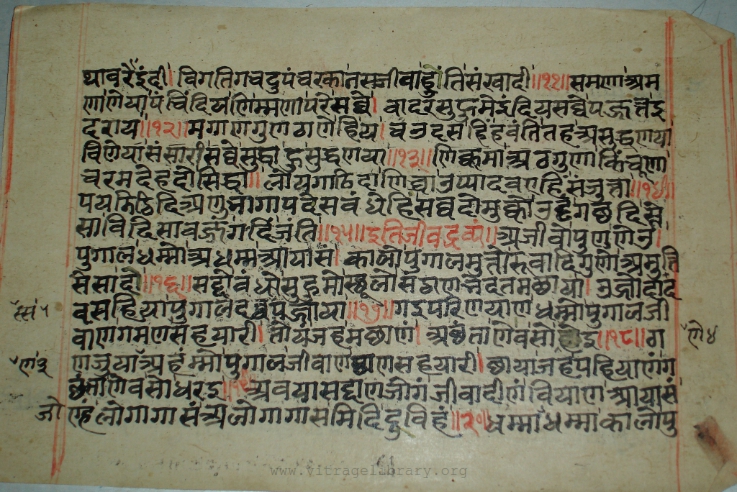 थावरेइंदी। विगतिगचदुपंचरका तसजीवा होंति संखादी॥११॥ समणा अम
णा णेया पंचिंदिय णिम्मणा परे सव्वे। बादरसुहुमेइंदिय सव्वे पज्जत्त इ
दरा य॥१२॥ मग्गणगुणठाणेहि य। चउदसहि हवंति तह असुद्धणया
विणेया संसारी सव्वे सुद्धा हु सुद्धणया॥१३॥ णिक्कम्मा अठगुणा किंचूणा
चरमदेहदो सिद्धा॥ लोयग्गठिदा णिच्चा उप्पादवएहिं संजुत्ता॥१४॥
पयडिठिदिअणुभागपदेसबंधेहि सव्वदो मुक्को उड्ढं गछदि से
सा विदिसावज्जं गदिं जंति॥१५॥ इति जीवद्रव्यं॥ अजीवो पुण णेउ।
पुगाल धम्मो अधम्म आयासं। कालो पुगाल मुत्तो रूवादिगुणो अमुत्ति
सेसा दो॥१६॥ सद्दो बंधो सुहुमो थूलो संठाणभेदतमछाया। उज्जोदाद
वसहिया पुगालदव्वस्स पज्जाया॥१७॥ गइपरिणयाण धम्मो पुगालजी
वाण गमणसहयारी। तोयं जह मछाणं। अछंता णेव सो णेइ॥१८॥ ठा
णजुयाण अहम्मो पुगालजीवाण ठाणसहयारी। छाया जह पहियाणं ग
छंता णेव सो धरइ॥१९॥ अवगासदाणजोगं जीवादीणं वियाण आयासं
जोण्हं लोगागासं अलोगागासमिदि दुविहं॥२०॥ धम्माधम्मा कालो पु
www.vitragelibrary.org